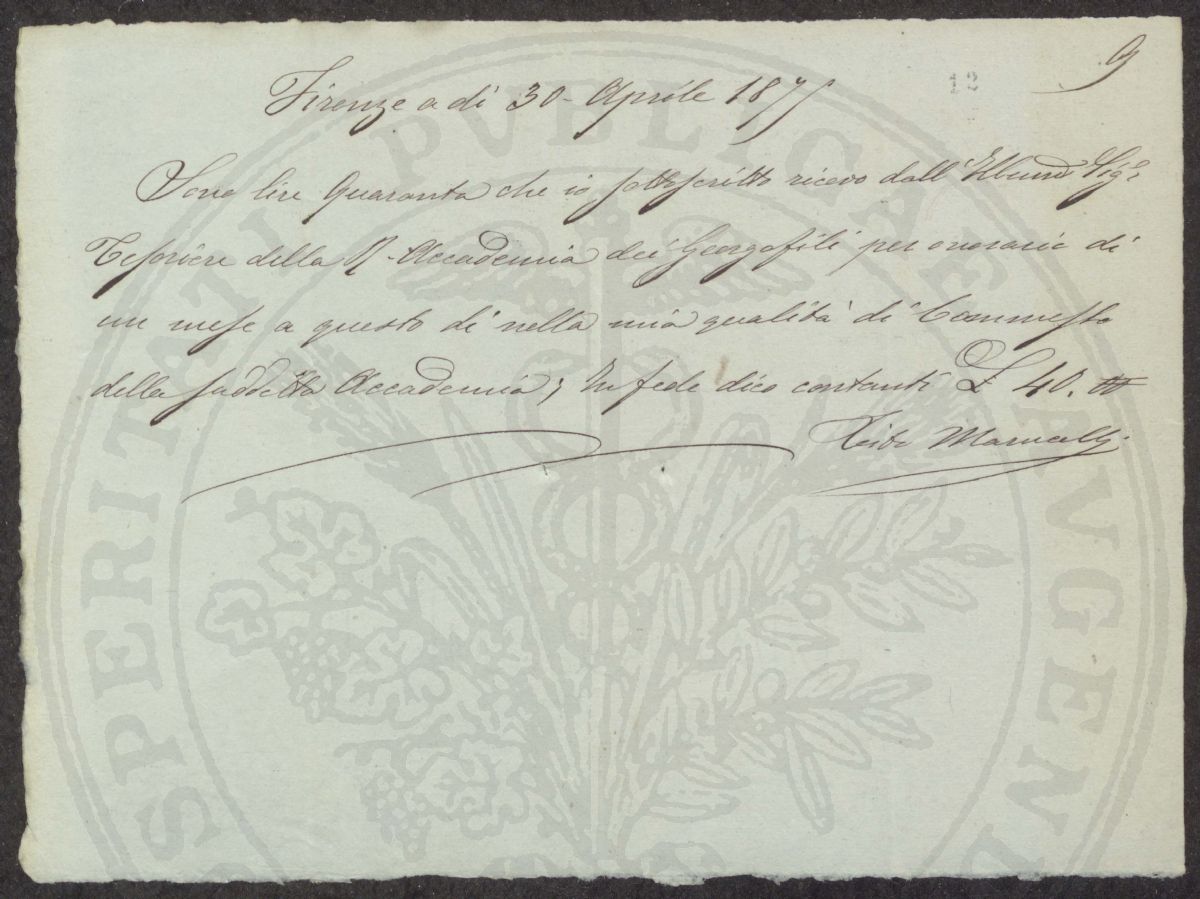 9
12
Firenze a di 30 - Aprile 187
Sono lire Quaranta che io sottoscritto ricevo dall' Sigr
Tesoriere della R. Accademia dei Georgofili per onorario di
un mese a questo di nella mia qualità di Commesso
della suddetta Accademia; In fede dico contanti £ 40.
PROSPERITATI PVBLICAE AVGENDAE